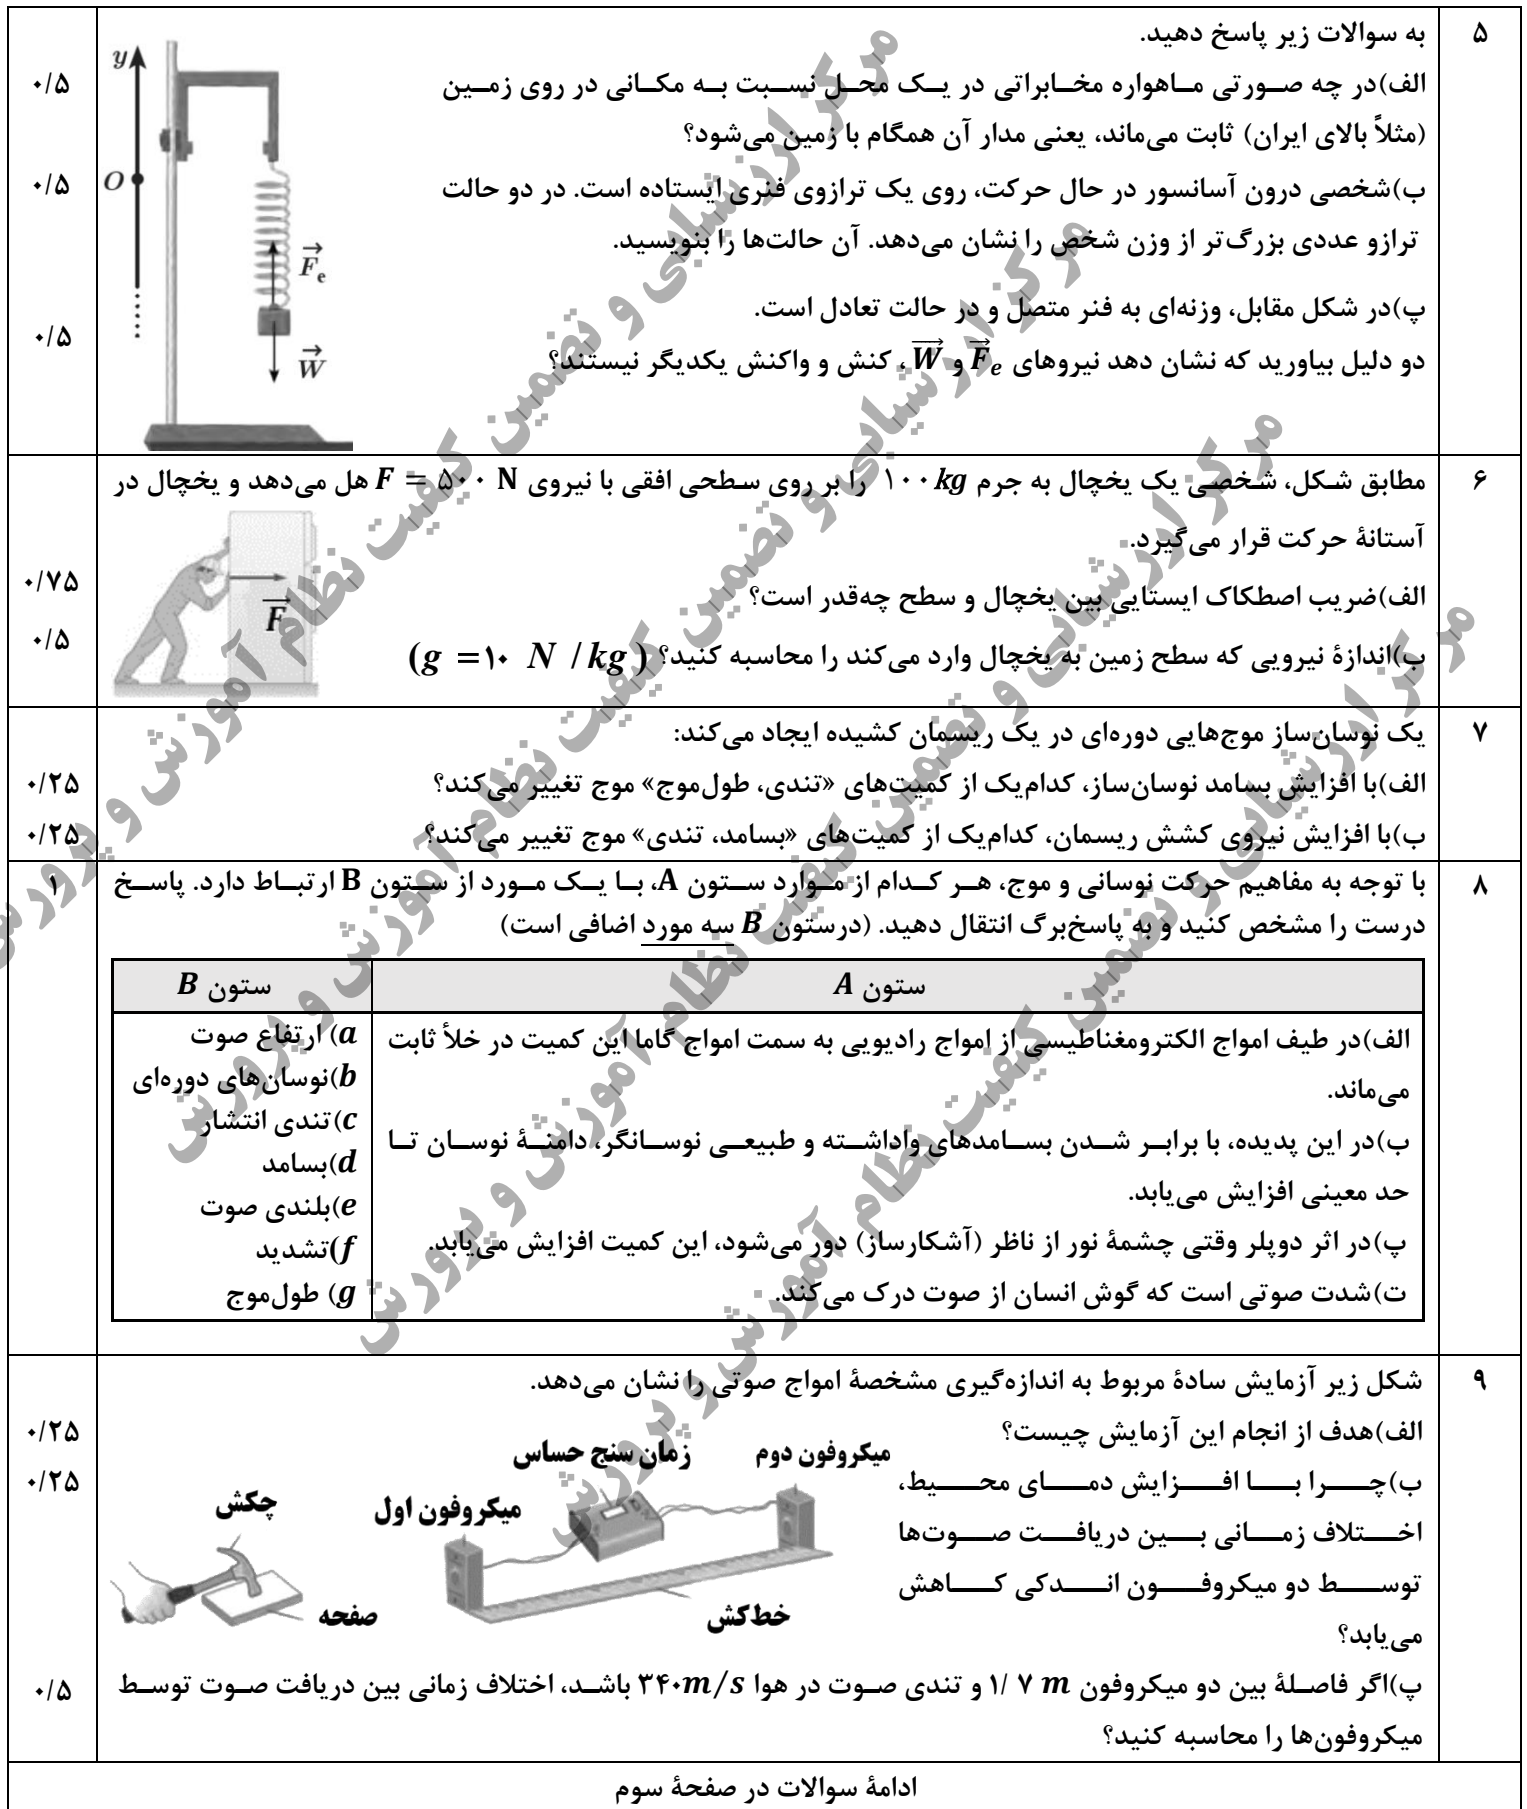 ۵
به سوالات زیر پاسخ دهید.
الف)در چه صورتی ماهواره مخابراتی در یک محل نسبت به مکانی در روی زمین
۰/۵
(مثلاً بالای ایران) ثابت می‌ماند، یعنی مدار آن همگام با زمین می‌شود؟
ب)شخصی درون آسانسور در حال حرکت، روی یک ترازوی فنری ایستاده است. در دو حالت
۰/۵
ترازو عددی بزرگ‌تر از وزن شخص را نشان می‌دهد. آن حالت‌ها را بنویسید.
پ)در شکل مقابل، وزنه‌ای به فنر متصل و در حالت تعادل است.
۰/۵
دو دلیل بیاورید که نشان دهد نیروهای F⃗e و W⃗، کنش و واکنش یکدیگر نیستند؟
y
O
F⃗e
W⃗
۶
مطابق شکل، شخصی یک یخچال به جرم ۱۰۰kg را بر روی سطحی افقی با نیروی F = ۵۰۰ N هل می‌دهد و یخچال در
آستانۀ حرکت قرار می‌گیرد.
الف)ضریب اصطکاک ایستایی بین یخچال و سطح چه‌قدر است؟
۰/۷۵
ب)اندازۀ نیرویی که سطح زمین به یخچال وارد می‌کند را محاسبه کنید؟ (g =۱۰ N /kg)
۰/۵
F⃗
۷
یک نوسان‌ساز موج‌هایی دوره‌ای در یک ریسمان کشیده ایجاد می‌کند:
الف)با افزایش بسامد نوسان‌ساز، کدام‌یک از کمیت‌های «تندی، طول‌موج» موج تغییر می‌کند؟
۰/۲۵
ب)با افزایش نیروی کشش ریسمان، کدام‌یک از کمیت‌های «بسامد، تندی» موج تغییر می‌کند؟
۰/۲۵
۸
با توجه به مفاهیم حرکت نوسانی و موج، هر کدام از موارد ستون A، با یک مورد از ستون B ارتباط دارد. پاسخ
۱
درست را مشخص کنید و به پاسخ‌برگ انتقال دهید. (درستون B سه مورد اضافی است)
ستون A
ستون B
الف)در طیف امواج الکترومغناطیسی از امواج رادیویی به سمت امواج گاما این کمیت در خلأ ثابت
می‌ماند.
ب)در این پدیده، با برابر شدن بسامدهای واداشته و طبیعی نوسانگر، دامنۀ نوسان تا
حد معینی افزایش می‌یابد.
پ)در اثر دوپلر وقتی چشمۀ نور از ناظر (آشکارساز) دور می‌شود، این کمیت افزایش می‌یابد.
ت)شدت صوتی است که گوش انسان از صوت درک می‌کند.
a) ارتفاع صوت
b)نوسان‌های دوره‌ای
c)تندی انتشار
d)بسامد
e)بلندی صوت
f)تشدید
g) طول‌موج
۹
شکل زیر آزمایش سادۀ مربوط به اندازه‌گیری مشخصۀ امواج صوتی را نشان می‌دهد.
الف)هدف از انجام این آزمایش چیست؟
۰/۲۵
ب)چرا با افزایش دمای محیط،
۰/۲۵
اختلاف زمانی بین دریافت صوت‌ها
توسط دو میکروفون اندکی کاهش
می‌یابد؟
میکروفون دوم
زمان سنج حساس
میکروفون اول
چکش
صفحه
خط‌کش
پ)اگر فاصلۀ بین دو میکروفون ۱/ ۷ m و تندی صوت در هوا ۳۴۰m/s باشد، اختلاف زمانی بین دریافت صوت توسط
۰/۵
میکروفون‌ها را محاسبه کنید؟
ادامۀ سوالات در صفحۀ سوم
مرکز ارزشیابی و تضمین کیفیت نظام آموزش و پرورش
مرکز ارزشیابی و تضمین کیفیت نظام آموزش و پرورش
مرکز ارزشیابی و تضمین کیفیت نظام آموزش و پرورش
مرکز ارزشیابی و تضمین کیفیت نظام آموزش و پرورش